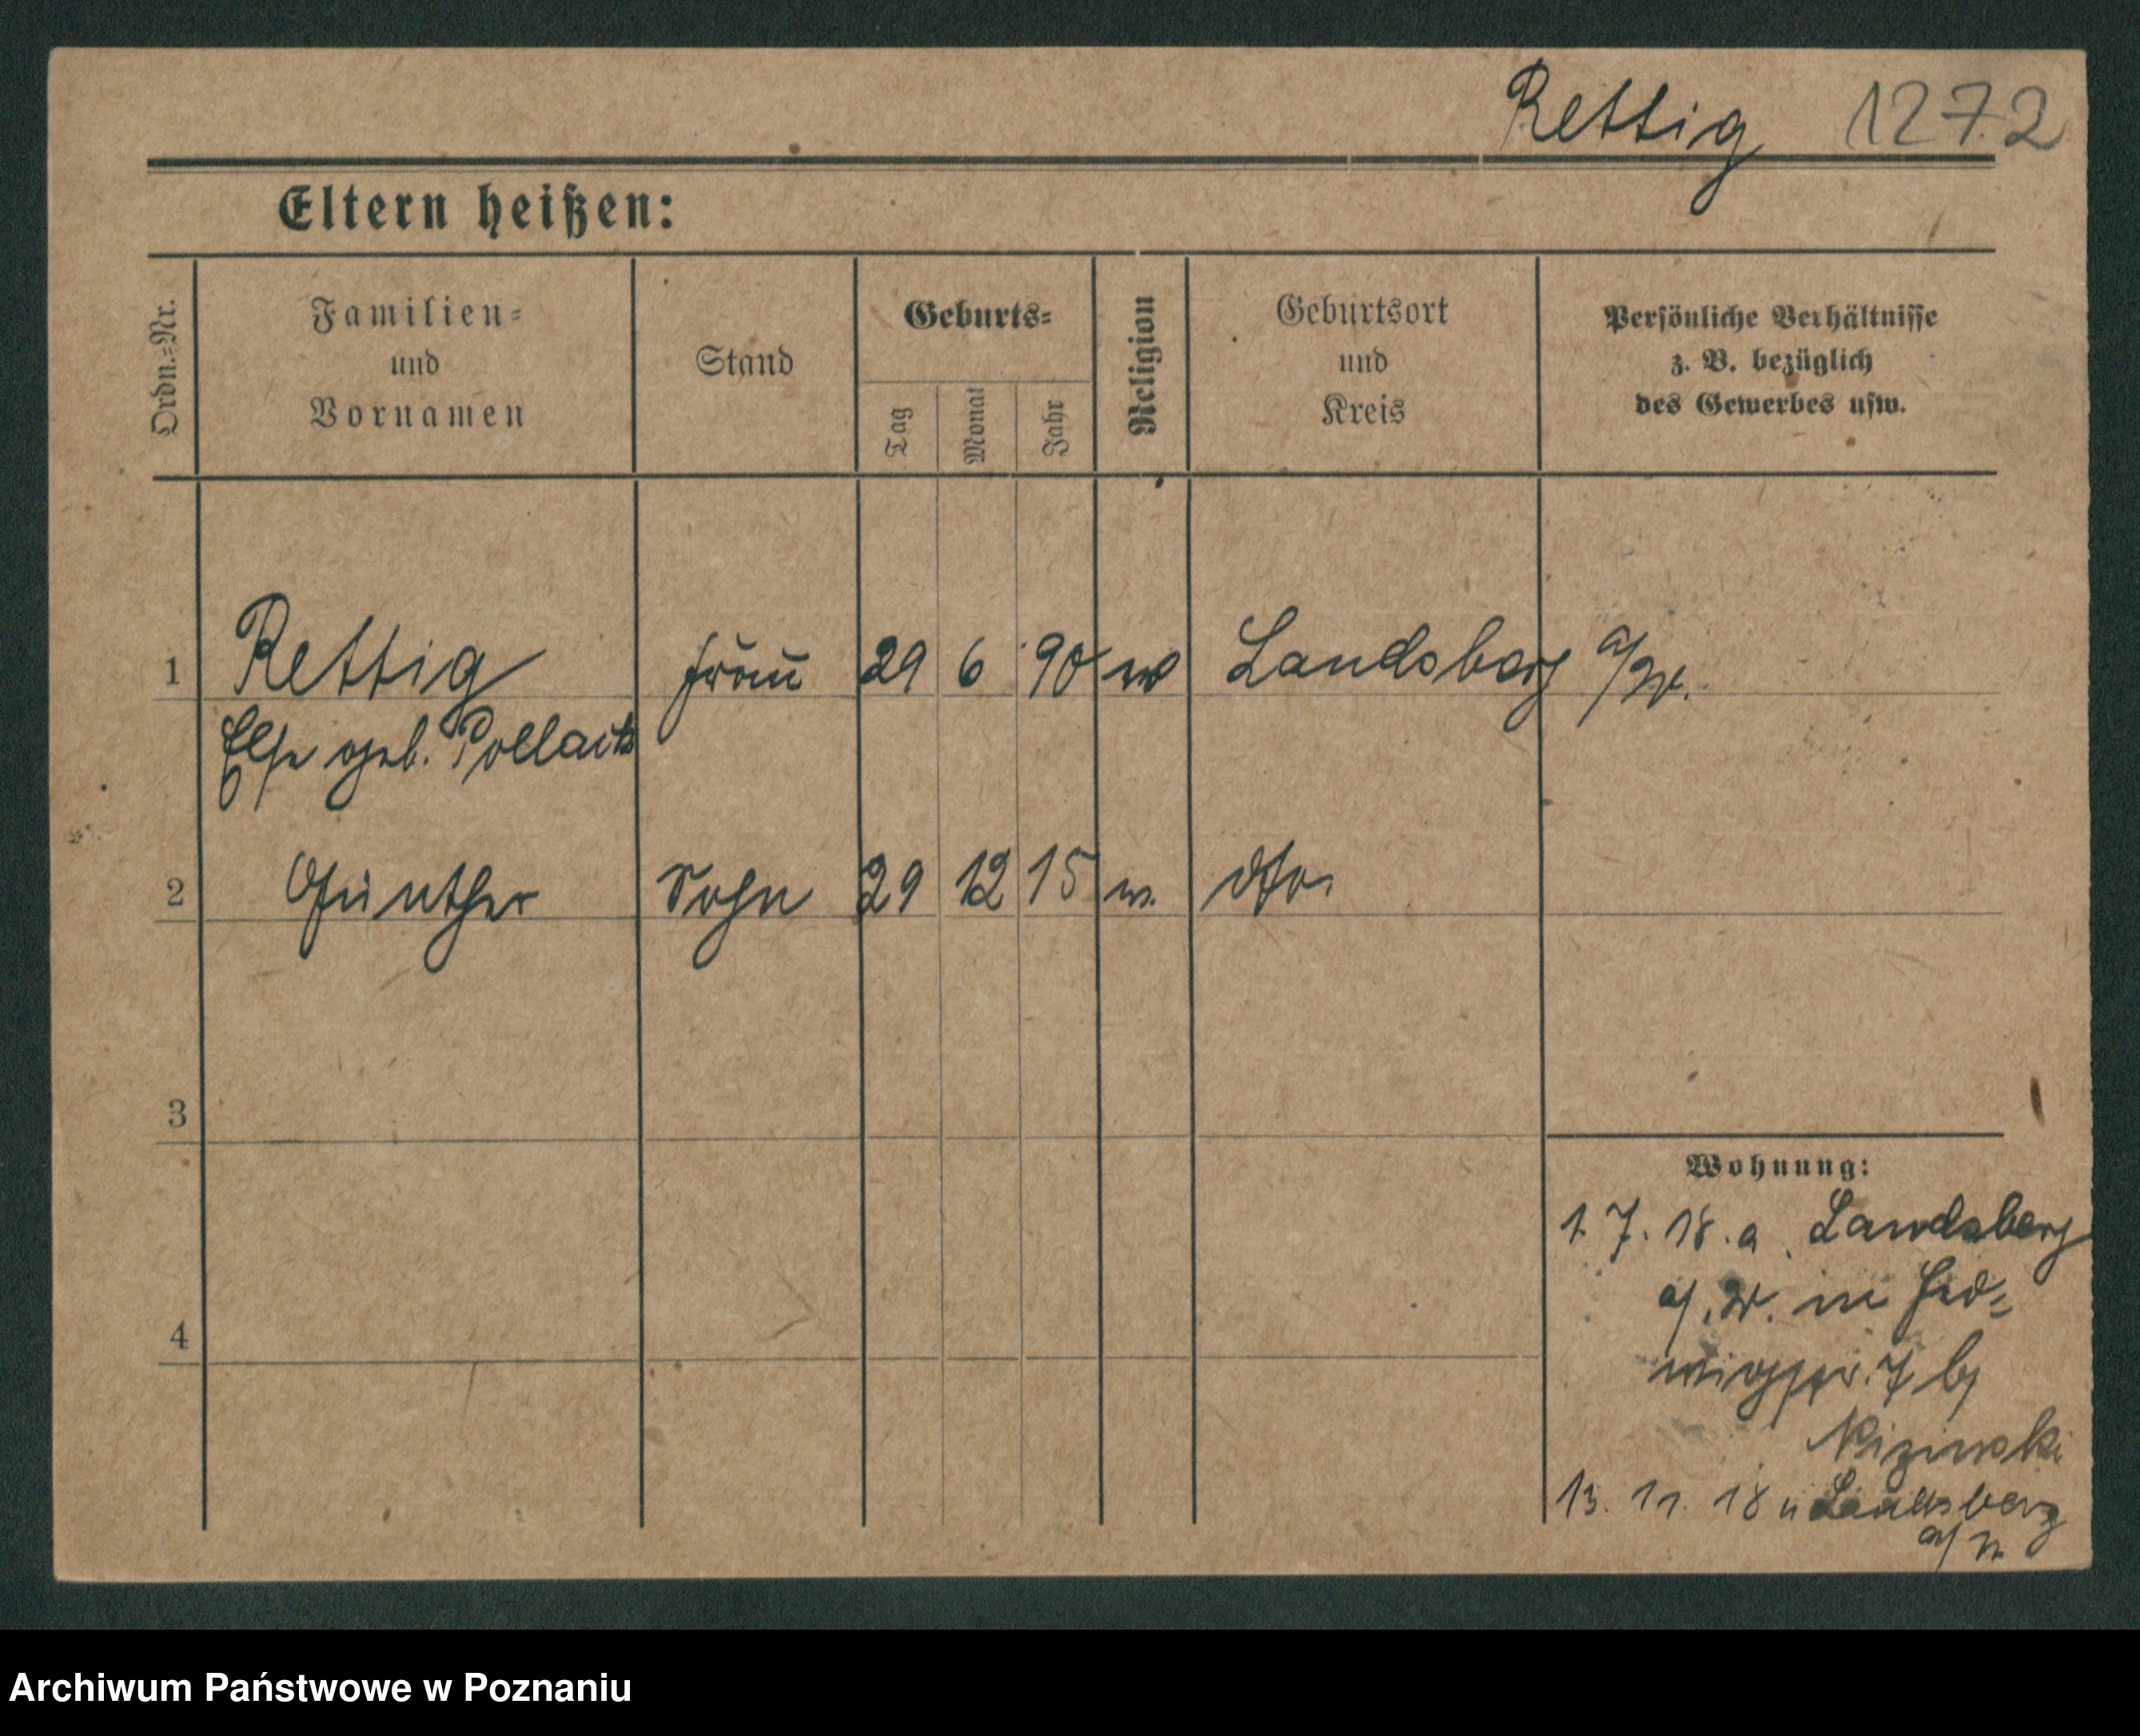 Rettig 1272
Eltern heißen:
Ordn.=Nr.
Familien=
und
Vornamen
Stand
Geburts=
Tag
Monat
Jahr
Religion
Geburtsort
und
Kreis
Persönliche Verhältnisse
z. B. bezüglich
des Gewerbes usw.
1 Rettig Frau 29 6 90 Landsberg a/W.
Else geb. Pollack
2 Günther Sohn 29 12 15 dto.
3
4
Wohnung:
1.7.18. a. Landsberg
a/W. in Hed=
wigstr. 7 bj
13. 11. 18 n Landsberg
a/W
Archiwum Państwowe w Poznaniu